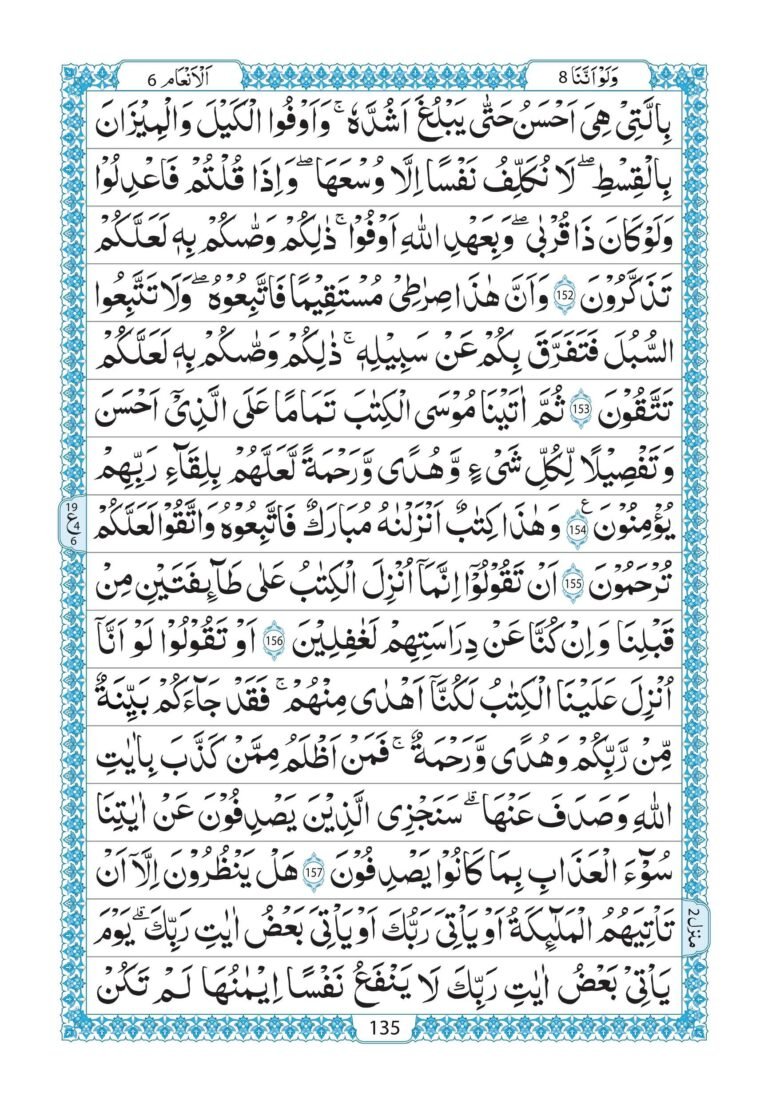 وَلَوْ اَنَّنَا 8
اَلْاَنْعَام 6
بِالَّتِیْ هِیَ اَحْسَنُ حَتّٰی یَبْلُغَ اَشُدَّهٗ ۚ وَاَوْفُوا الْكَیْلَ وَالْمِیْزَانَ
بِالْقِسْطِ ۖ لَا نُكَلِّفُ نَفْسًا اِلَّا وُسْعَهَا ۖ وَاِذَا قُلْتُمْ فَاعْدِلُوْا
وَلَوْ كَانَ ذَا قُرْبٰی ۖ وَبِعَهْدِ اللّٰهِ اَوْفُوْا ۚ ذٰلِكُمْ وَصّٰىكُمْ بِهٖ لَعَلَّكُمْ
تَذَكَّرُوْنَ 152 وَاَنَّ هٰذَا صِرَاطِیْ مُسْتَقِیْمًا فَاتَّبِعُوْهُ ۖ وَلَا تَتَّبِعُوا
السُّبُلَ فَتَفَرَّقَ بِكُمْ عَنْ سَبِیْلِهٖ ۚ ذٰلِكُمْ وَصّٰىكُمْ بِهٖ لَعَلَّكُمْ
تَتَّقُوْنَ 153 ثُمَّ اٰتَیْنَا مُوْسَی الْكِتٰبَ تَمَامًا عَلَی الَّذِیْۤ اَحْسَنَ
وَتَفْصِیْلًا لِّكُلِّ شَیْءٍ وَّهُدًی وَّرَحْمَةً لَّعَلَّهُمْ بِلِقَآءِ رَبِّهِمْ
یُؤْمِنُوْنَ 154 ع وَهٰذَا كِتٰبٌ اَنْزَلْنٰهُ مُبَارَكٌ فَاتَّبِعُوْهُ وَاتَّقُوْا لَعَلَّكُمْ
19
ع 4
6
تُرْحَمُوْنَ 155 اَنْ تَقُوْلُوْۤا اِنَّمَاۤ اُنْزِلَ الْكِتٰبُ عَلٰی طَآىِٕفَتَیْنِ مِنْ
قَبْلِنَا وَاِنْ كُنَّا عَنْ دِرَاسَتِهِمْ لَغٰفِلِیْنَ 156 اَوْ تَقُوْلُوْا لَوْ اَنَّاۤ
اُنْزِلَ عَلَیْنَا الْكِتٰبُ لَكُنَّاۤ اَهْدٰی مِنْهُمْ ۚ فَقَدْ جَآءَكُمْ بَیِّنَةٌ
مِّنْ رَّبِّكُمْ وَهُدًی وَّرَحْمَةٌ ۚ فَمَنْ اَظْلَمُ مِمَّنْ كَذَّبَ بِاٰیٰتِ
اللّٰهِ وَصَدَفَ عَنْهَا ؕ سَنَجْزِی الَّذِیْنَ یَصْدِفُوْنَ عَنْ اٰیٰتِنَا
سُوْٓءَ الْعَذَابِ بِمَا كَانُوْا یَصْدِفُوْنَ 157 هَلْ یَنْظُرُوْنَ اِلَّاۤ اَنْ
تَاْتِیَهُمُ الْمَلٰٓىِٕكَةُ اَوْ یَاْتِیَ رَبُّكَ اَوْ یَاْتِیَ بَعْضُ اٰیٰتِ رَبِّكَ ؕ یَوْمَ
منزل 2
یَاْتِیْ بَعْضُ اٰیٰتِ رَبِّكَ لَا یَنْفَعُ نَفْسًا اِیْمٰنُهَا لَمْ تَكُنْ
135